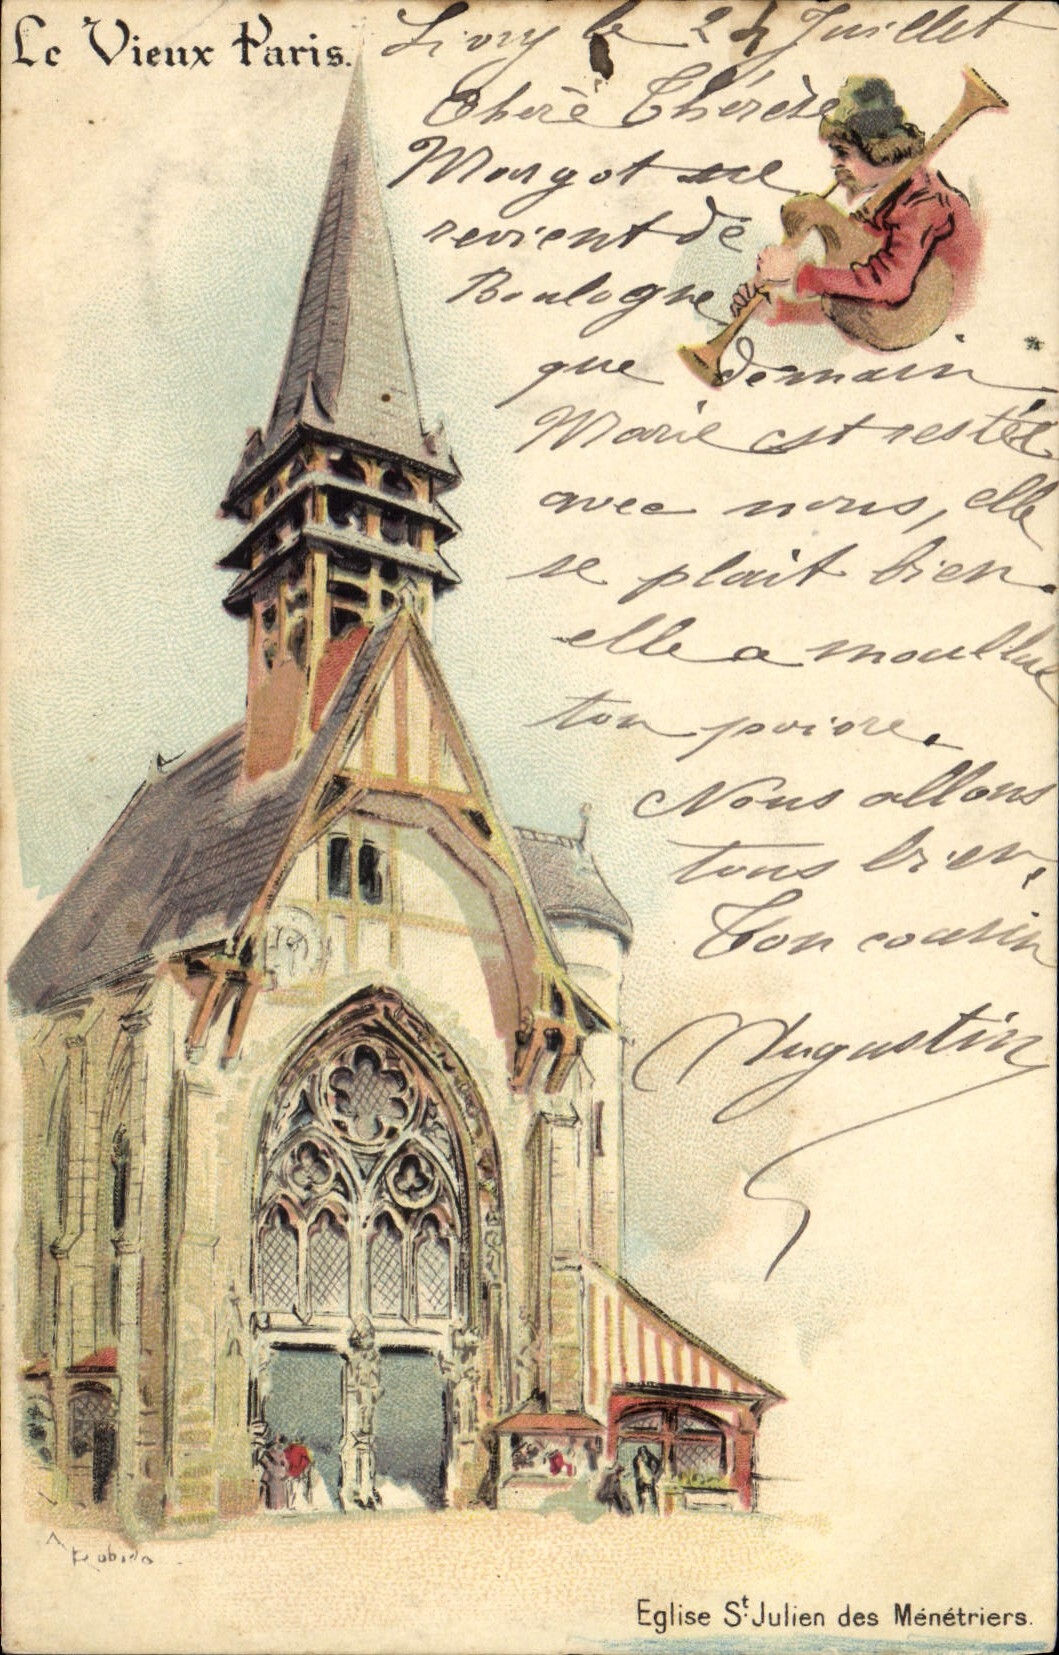 Le Vieux Paris.
Livry le 24 Juillet
Chère Thérèse
Margot ne
revient de
Boulogne
que demain
Marie est restée
avec nous, elle
se plait bien.
elle a moullue
ton poivre.
Nous allons
tous bien,
Ton cousin
Augustin
A Robida
Eglise St. Julien des Ménétriers.